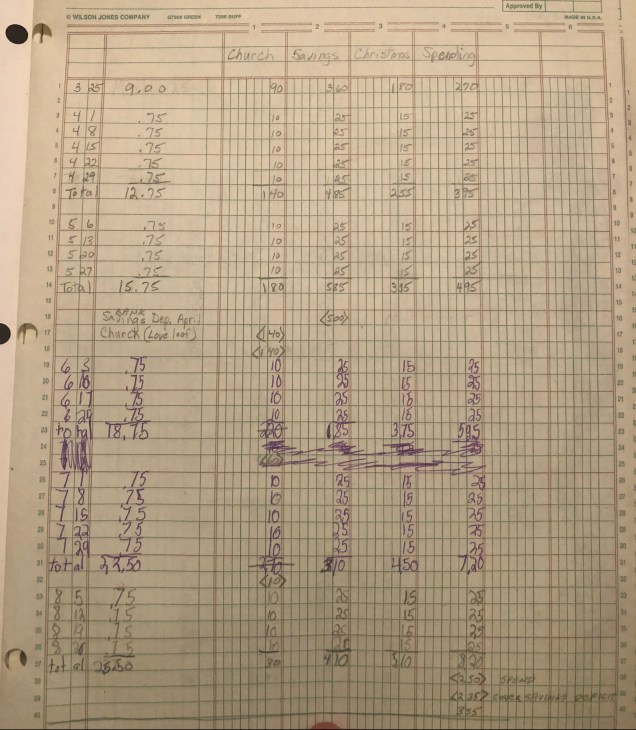 Approved By
© WILSON JONES COMPANY G7506 GREEN 7206 BUFF MADE IN U.S.A.
1 2 3 4 5 6
Church Savings Christmas Spending
3 25 9.00 90 360 180 270
4 1 .75 10 25 15 25
4 8 .75 10 25 15 25
4 15 .75 10 25 15 25
4 22 .75 10 25 15 25
4 29 .75 10 25 15 25
Total 12.75 140 485 255 395
5 6 .75 10 25 15 25
5 13 .75 10 25 15 25
5 20 .75 10 25 15 25
5 27 .75 10 25 15 25
Total 15.75 180 585 315 495
BANK
Savings Dep. April <500>
Church (Love loaf) <140>
<140>
6 3 .75 10 25 15 25
6 10 .75 10 25 15 25
6 17 .75 10 25 15 25
6 24 .75 10 25 15 25
total 18.75 220 185 3.75 595
7 1 .75 10 25 15 25
7 8 .75 10 25 15 25
7 15 .75 10 25 15 25
7 22 .75 10 25 15 25
7 29 .75 10 25 15 25
total 22.50 310 4.50 7.20
<10>
8 5 .75 10 25 15 25
8 12 .75 10 25 15 25
8 19 .75 10 25 15 25
8 26 .75 10 25 15 25
total 25.50 80 410 510 820
<250> SPEND
<235> COVER SAVINGS DEFICIT
335